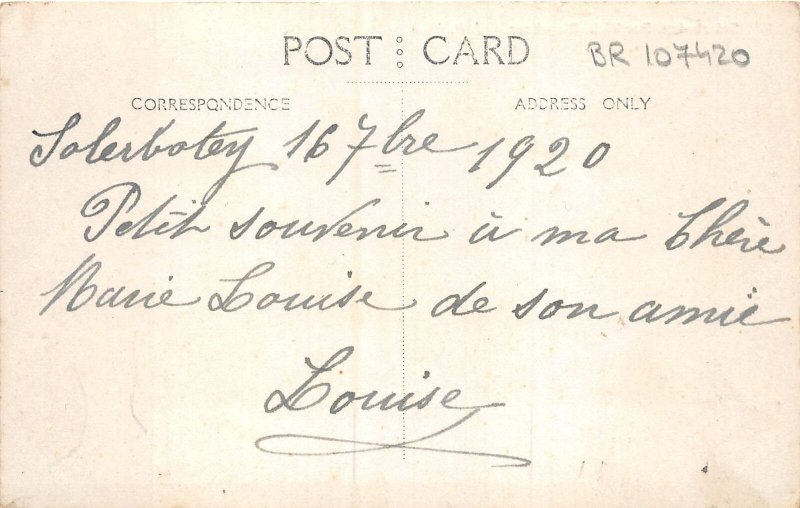 POST CARD
BR 107420
CORRESPONDENCE
ADDRESS ONLY
16 7bre 1920
Petit souvenir à ma Chère
Marie Louise de son amie
Louise